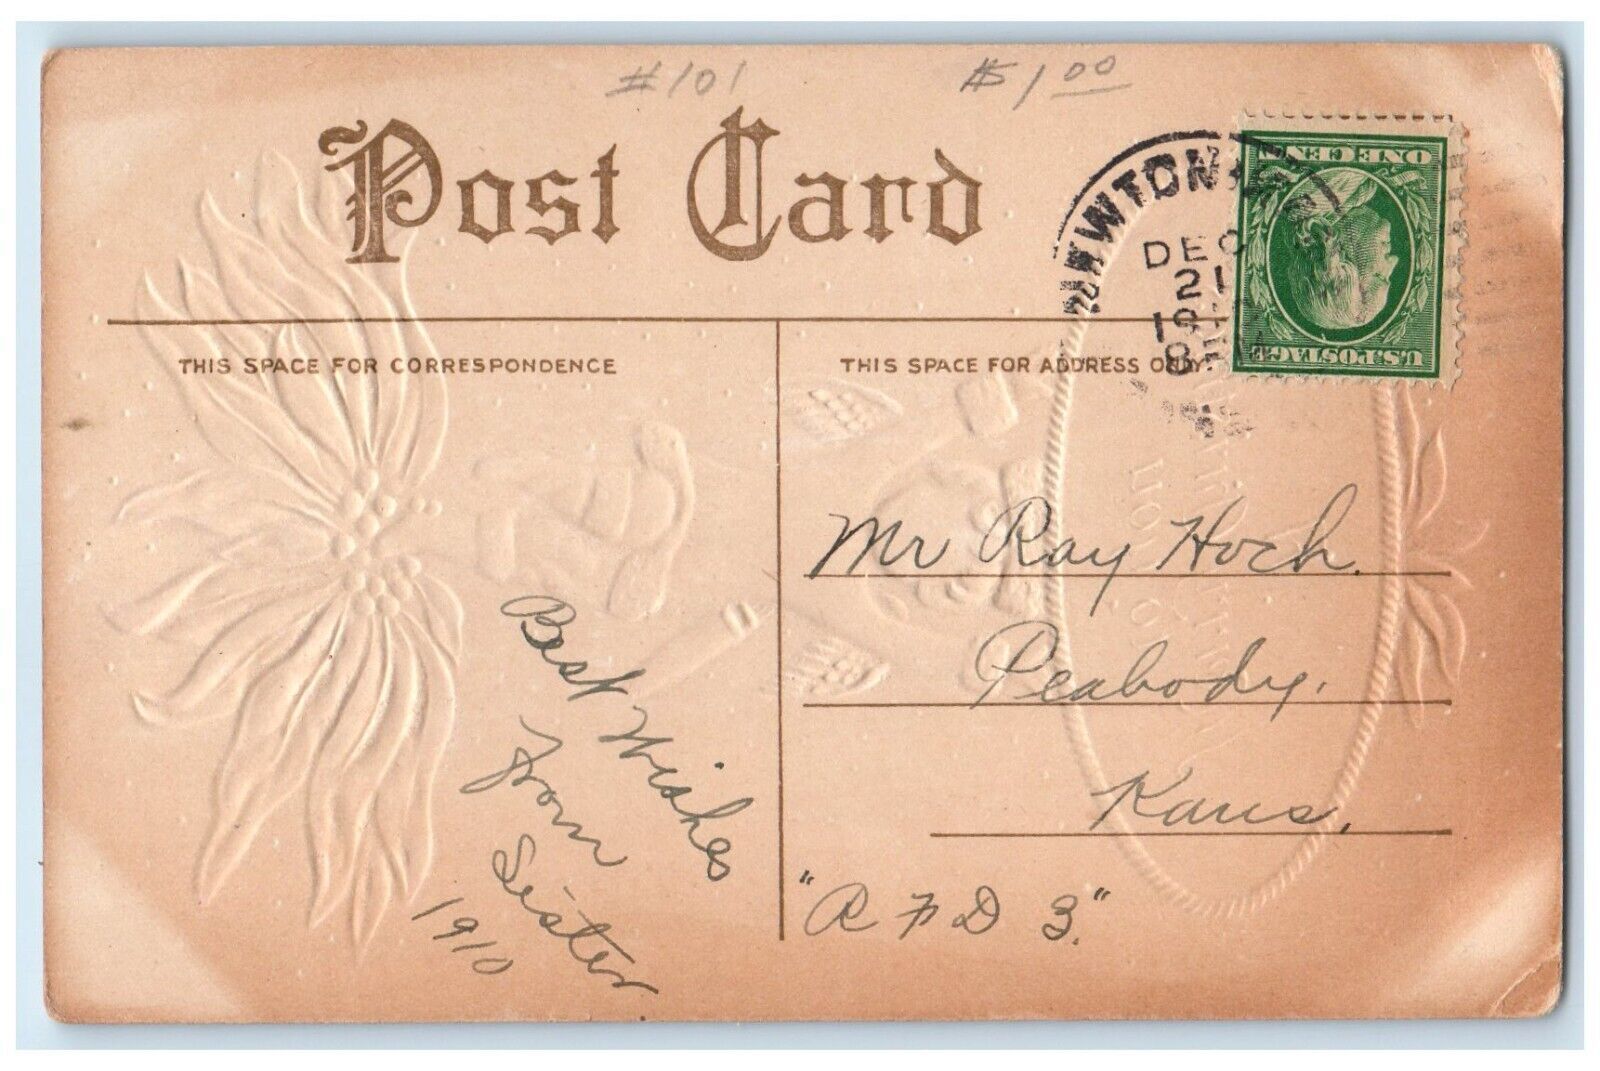 #101 $1.00
Post Card
NEWTON
DEC
21
ONE CENT
U.S. POSTAGE
THIS SPACE FOR CORRESPONDENCE
THIS SPACE FOR ADDRESS ONLY.
Best Wishes
from
Sister
1910
Mr Ray Hoch.
Peabody.
Kans.
"R F D 3."